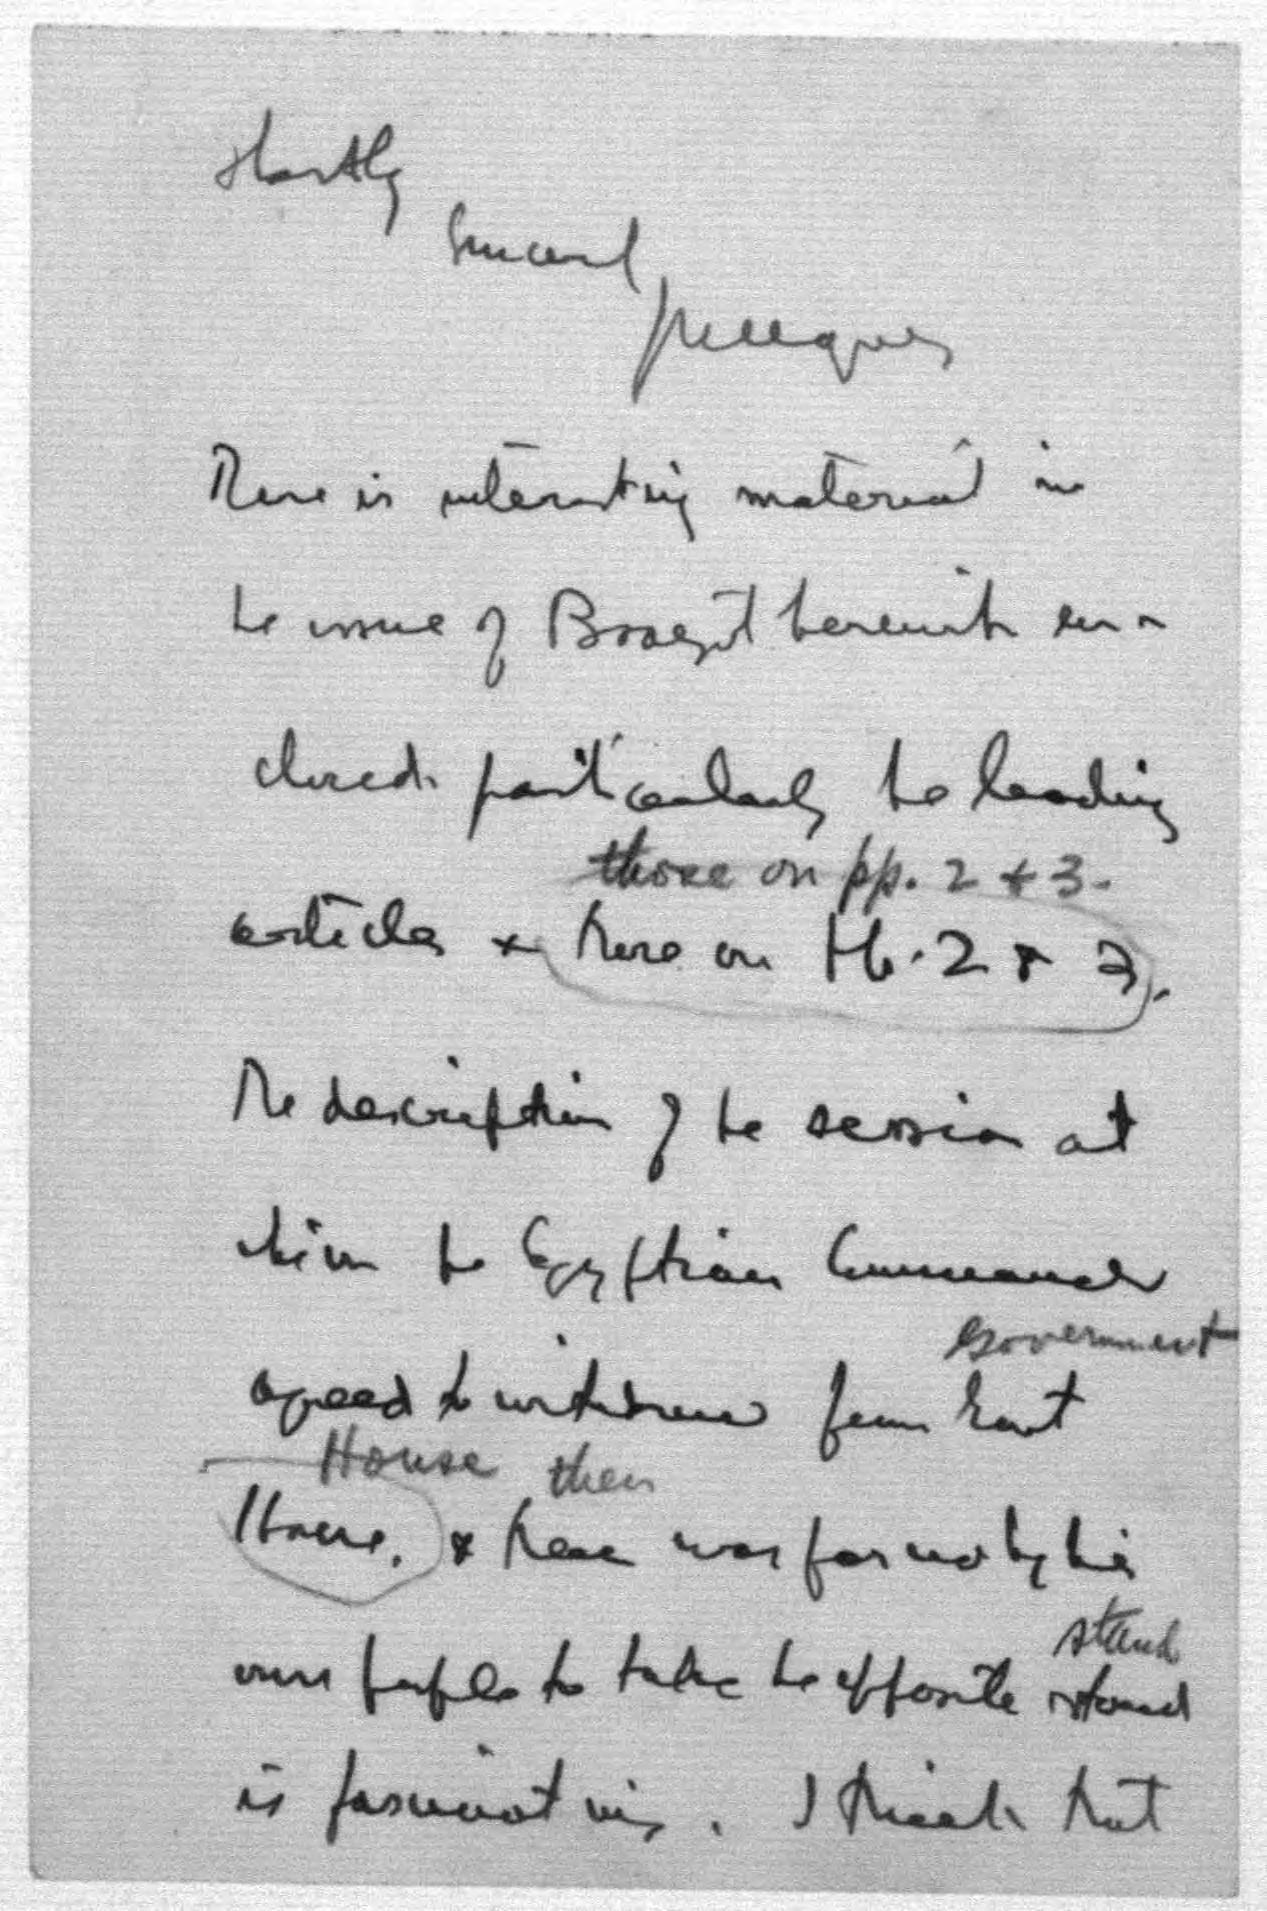 Hastily
There is interesting material in
the issue of Bosgit herewith en-
closed. particularly the leading
those on pp. 2 + 3.
articles + those on pp. 2 + 3.
The description of the session at
which the Egyptian Commander
Government
agreed to withdraw from Govt
House then
House. + then was forced by his
own people to take the opposite stand
stand
is fascinating. I think that